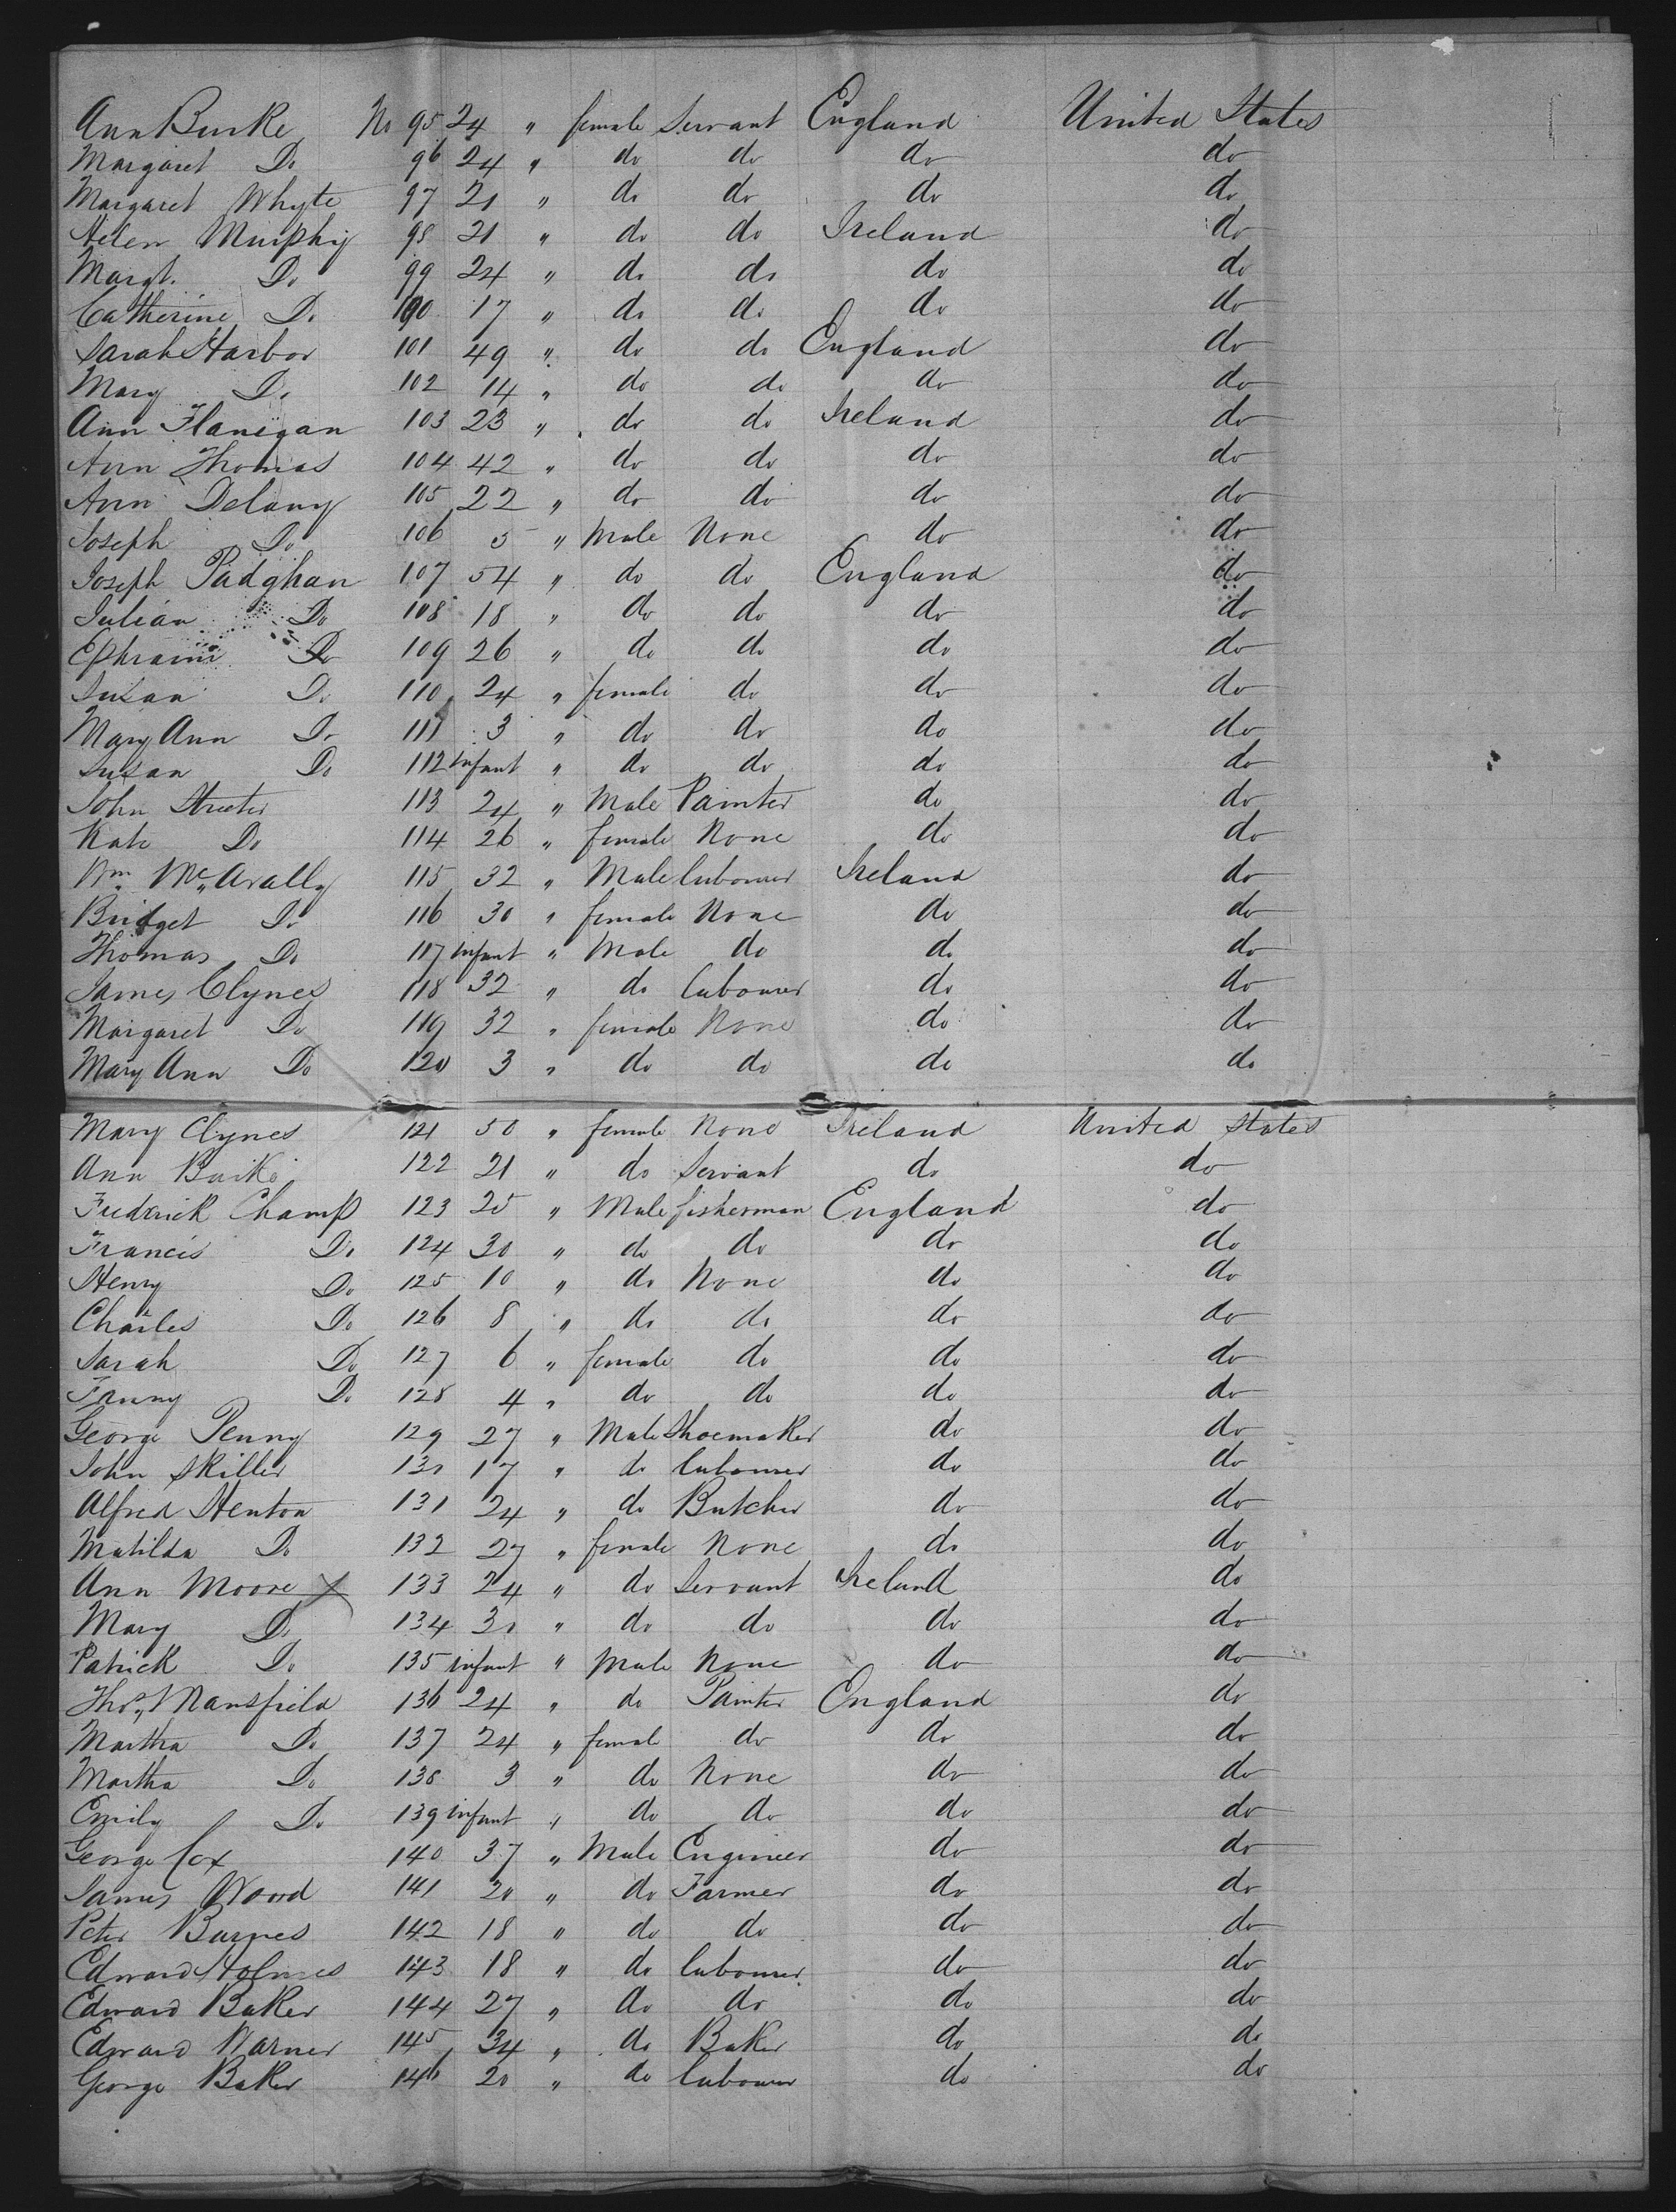 Ann Burke No 95 24 " female Servant England United States
Margaret Do 96 24 " do do do do
Margaret Whyte 97 21 " do do do do
Helen Murphy 98 21 " do do Ireland do
Margt. Do 99 24 " do do do do
Catherine Do 100 17 " do do do do
Sarah Harbor 101 49 " do do England do
Mary Do 102 14 " do do do do
Ann Flanigan 103 23 " do do Ireland do
Ann Thomas 104 42 " do do do do
Ann Delany 105 22 " do do do do
Joseph Do 106 5 " Male None do do
Joseph Padghan 107 54 " do do England do
Julian Do 108 18 " do do do do
Ephraim Do 109 26 " do do do do
Susan Do 110 24 " female do do do
Mary Ann Do 111 3 " do do do do
Susan Do 112 infant " do do do do
John Streeter 113 24 " Male Painter do do
Kate Do 114 26 " female None do do
Wm. McAvally 115 32 " Male labourer Ireland do
Bridget Do 116 30 " female None do do
Thomas Do 117 infant " Male do do do
James Clynes 118 32 " do labourer do do
Margaret Do 119 32 " female None do do
Mary Ann Do 120 3 " do do do do
Mary Clynes 121 50 " female None Ireland United States
Ann Burke 122 21 " do Servant do do
Fredrick Champ 123 25 " Male fisherman England do
Francis Do 124 30 " do do do do
Henry Do 125 10 " do None do do
Charles Do 126 8 " do do do do
Sarah Do 127 6 " female do do do
Fanny Do 128 4 " do do do do
George Penny 129 27 " Male Shoemaker do do
John Skiller 130 17 " do labourer do do
Alfred Henton 131 24 " do Butcher do do
Matilda Do 132 27 " female None do do
Ann Moore X 133 24 " do Servant Ireland do
Mary Do 134 30 " do do do do
Patrick Do 135 infant " Male None do do
Thos. Mansfield 136 24 " do Painter England do
Martha Do 137 24 " female do do do
Martha Do 138 3 " do None do do
Emily Do 139 infant " do do do do
George Cox 140 37 " Male Engineer do do
James Wood 141 20 " do Farmer do do
Peter Barnes 142 18 " do do do do
Edward Holmes 143 18 " do labourer do do
Edward Baker 144 27 " do do do do
Edward Warner 145 34 " do Baker do do
George Baker 146 20 " do labourer do do